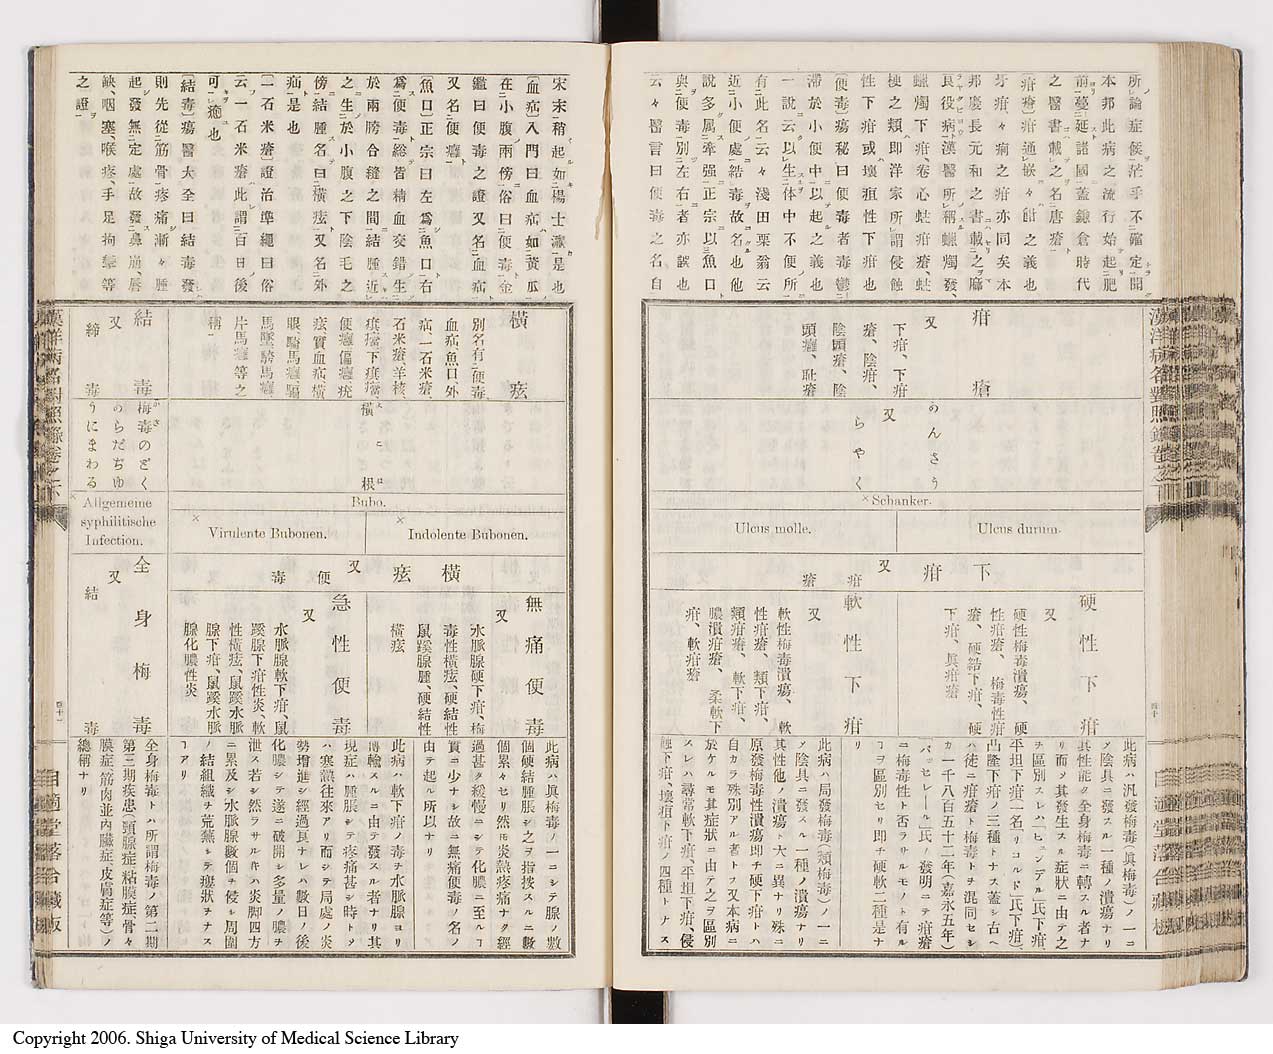 所論症候茫乎不確定開
本邦此病之流行始起肥
前蔓延諸國蓋鎌倉時代
之醫書載之名唐瘡
疳瘡疳通嵌々飿之義也
牙疳々病之疳亦同矣本
邦慶長元和之書載之
良役病漢醫所稱蠟燭發
蠟燭下疳卷心蛀疳瘡蛀
梗之類即洋家所謂侵蝕
性下疳或壞疽性下疳也
便毒瘍秘曰便毒者毒
滯於小便中以起之義也
一說云以生體中不便所
有此名云々淺田栗翁云
近小便處結毒故名也他
說多属牽强正宗以魚口
與便毒別左右者亦誤也
云々醫言曰便毒之名自
漢洋病名對照錄卷之下
疳瘡
又
下疳、下疳
瘡、陰疳、
陰頭瘡、陰
頭癰、耻瘡
のんさう
又
らやく
Schanker.
Ulcus durum.
Ulcus molle.
下疳
又
疳瘡
硬性下疳
又
硬性梅毒潰瘍、硬
性疳瘡、梅毒性疳
瘡、硬結下疳、硬
下疳、眞疳瘡
軟性下疳
又
軟性梅毒潰瘍、軟
性疳瘡、類下疳、
類疳瘡、軟下疳、
膿潰疳瘡、柔軟下
疳、軟疳瘡
此病ハ汎發梅毒(眞梅毒)ノ一ニ
メ陰具ニ發スル一種ノ潰瘍ナリ
其性能ク全身梅毒ニ轉スル者ナ
リ而ソ其發生スル症狀ニ由テ之
ヲ區別スレハ「ヒュンデル」氏下疳
平坦下疳(一名「リコルド」氏下疳)、
凸隆下疳ノ三種トナス蓋シ古ヘ
ハ徒ニ疳瘡ト梅毒トヲ混同セシ
カ一千八百五十二年(嘉永五年)
「バッセレール」氏ノ發明ニテ疳瘡
ニ梅毒性ト否ラサルモノト有ル
ヿヲ區別セリ即チ硬軟二種是ナ
リ
此病ハ局發梅毒(類梅毒)ノ一ニ
メ陰具ニ發スル一種ノ潰瘍ナリ
其性他ノ潰瘍ト大ニ異ナリ殊ニ
原發梅毒性潰瘍即チ硬下疳トハ
自カラ殊別アル者トヲ又本病ニ
於ケルモ其症狀ニ由テ之ヲ區別
スレハ尋常軟下疳、平坦下疳、侵
蝕下疳、壞疽下疳ノ四種トナス
四十
自適堂落合藏板
宋末稍起如楊士瀛是也
血疝入門曰血疝如黃瓜
在小腹兩傍俗曰便毒金
鑑曰便毒之證又名血疝
又名便癰
魚口正宗曰左為魚口右
為便毒総皆精血交錯生
於兩胯合縫之間結腫近
之生於小腹之下陰毛之
傍結腫名曰橫痃又名外
疝是也
一石米瘡證治準繩曰俗
云一石米瘡此謂百日後
可癒也
結毒瘍醫大全曰結毒發
則先從筋骨疼痛漸々腫
起發無定處故發鼻崩唇
缺、咽塞、喉疼、手足拘攣等
之證
橫痃
別名有便毒、
血疝、魚口、外
疝、一石米瘡、
石米瘡、羊核、
㾿瘡、下㾿瘡、
便癰、偏癰、疣
痃、實血疝、橫
眼、騎馬癰、騸
馬墜、騎馬癰、
片馬癰等之
稱
橫根
よこね
Bubo.
Indolente Bubonen.
Virulente Bubonen.
橫痃
又
便毒
無痛便毒
又
水脈腺硬下疳、梅
毒性橫痃、硬結性
鼠蹊腺腫、硬結性
橫痃
急性便毒
又
水脈腺軟下疳、鼠
蹊腺下疳性炎、軟
性橫痃、鼠蹊水脈
腺下疳、鼠蹊水脈
腺化膿性炎
此病ハ眞梅毒ノ一ニシテ腺ノ數
個硬結腫脹シ之ヲ指按スルニ數
個累々セリ然モ炎熱疼痛ナク經
過甚タ緩慢ニシテ化膿ニ至ルヿ
實ニ少ナシ故ニ無痛便毒ノ名ノ
由テ起ル所以ナリ
此病ハ軟下疳ノ毒ヲ水脈腺ヨリ
傳輸スルニ由テ發スル者ナリ其
現症ハ腫脹シテ疼痛甚シ時トメ
ハ寒熱往來アリ而シテ局處ノ炎
勢增進シ經過良ナレハ數日ノ後
化膿シテ遂ニ破開シ多量ノ膿ヲ
泄ス若シ然ラサルキハ炎脚四方
ニ累及シ水脈腺數個ヲ侵シ周圍
ノ結組織ヲ荒蕪シテ瘻狀ヲナス
ヿアリ
結毒
又
締毒
梅毒のどく
かさ
のらだぢゆ
うにまわる
Allgemeine
syphilitische
Infection.
全身梅毒
又
結毒
全身梅毒トハ所謂梅毒ノ第二期
第三期疾患(頸腺症、粘膜症、骨々
膜症、筋肉並內臟症、皮膚症等)ノ
總稱ナリ
漢洋病名對照錄卷之下
四十一
自適堂落合藏板
Copyright 2006. Shiga University of Medical Science Library